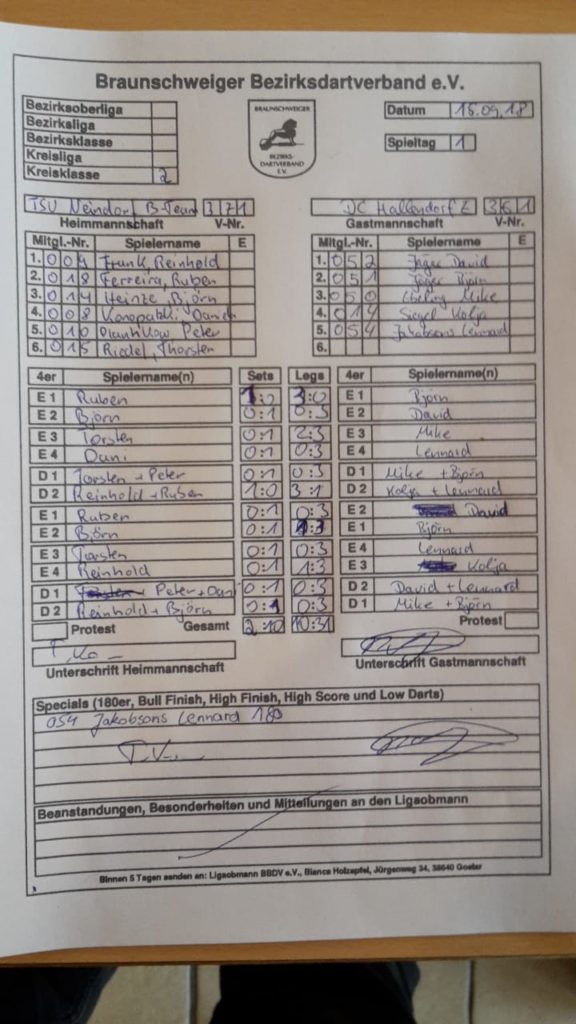 Braunschweiger Bezirksdartverband e.V.
Bezirksoberliga
Bezirksliga
Bezirksklasse
Kreisliga
Kreisklasse 2
BRAUNSCHWEIGER
BEZIRKS-
DARTVERBAND
E.V.
Datum 15.09.18
Spieltag 1
TSV Neindorf B-Team 3 7 1
Heimmannschaft V-Nr.
DC Hallendorf E 3 6 1
Gastmannschaft V-Nr.
Mitgl.-Nr. Spielername E
1. 0 0 4 Frank, Reinhold
2. 0 1 8 Ferreira, Ruben
3. 0 1 4 Heinze, Björn
4. 0 0 8 Konopatzki, Dani
5. 0 1 0 Peter
6. 0 1 5 Riedel, Thorsten
Mitgl.-Nr. Spielername E
1. 0 5 2 Jäger David
2. 0 5 1 Jäger Björn
3. 0 5 0 Mike
4. 0 1 4 Siegel Kolja
5. 0 5 4 Jakobsons Lennard
6.
4er Spielername(n) Sets Legs 4er Spielername(n)
E 1 Ruben 1:0 3:0 E 1 Björn
E 2 Björn 0:1 0:3 E 2 David
E 3 Torsten 0:1 2:3 E 3 Mike
E 4 Dani 0:1 0:3 E 4 Lennard
D 1 Torsten + Peter 0:1 0:3 D 1 Mike + Björn
D 2 Reinhold + Ruben 1:0 3:1 D 2 Kolja + Lennard
E 1 Ruben 0:1 0:3 E 2 David
E 2 Björn 0:1 1:3 E 1 Björn
E 3 Torsten 0:1 0:3 E 4 Lennard
E 4 Reinhold 0:1 1:3 E 3 Kolja
D 1 Peter + Dani 0:1 0:3 D 2 David + Lennard
D 2 Reinhold + Björn 0:1 0:3 D 1 Mike + Björn
Protest Gesamt 2:10 10:31 Protest
Unterschrift Heimmannschaft Unterschrift Gastmannschaft
Specials (180er, Bull Finish, High Finish, High Score und Low Darts)
054 Jakobsons Lennard 180
Beanstandungen, Besonderheiten und Mitteilungen an den Ligaobmann
Binnen 5 Tagen senden an: Ligaobmann BBDV e.V., Bianca Holzapfel, Jürgenweg 34, 38640 Goslar